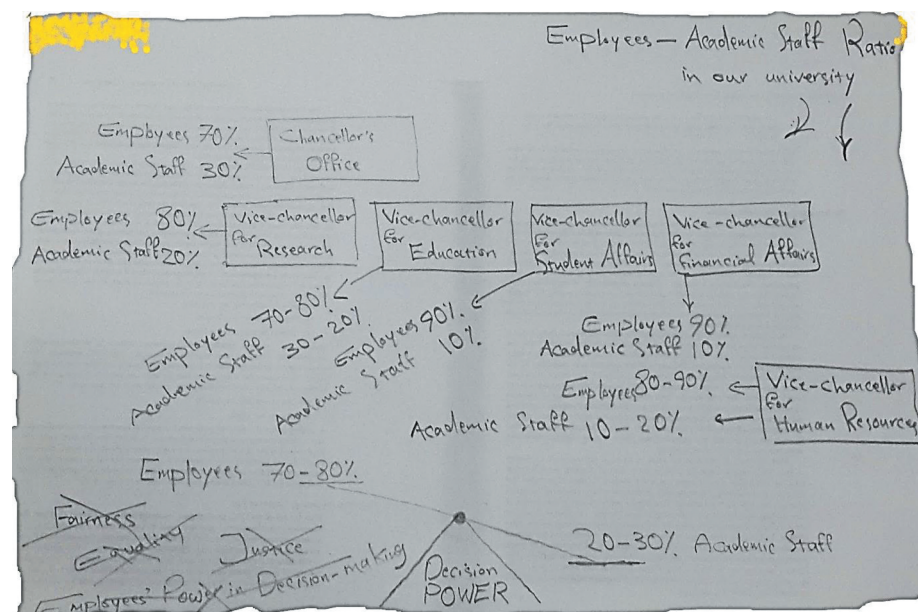 Employees – Academic Staff Ratio
in our university
Employees 70%
Academic Staff 30%
Chancellor's
Office
Employees 80%
Academic Staff 20%
Vice-chancellor
for
Research
Vice-chancellor
for
Education
Vice-chancellor
for
Student Affairs
Vice-chancellor
for
Financial Affairs
Employees 70-80%
Academic Staff 30-20%
Employees 90%
Academic Staff 10%
Employees 90%
Academic Staff 10%
Employees 80-90%
Academic Staff 10-20%
Vice-chancellor
for
Human Resources
Employees 70-80%
20-30% Academic Staff
Fairness
Equality
Justice
Employees' Power in Decision-making
Decision
POWER